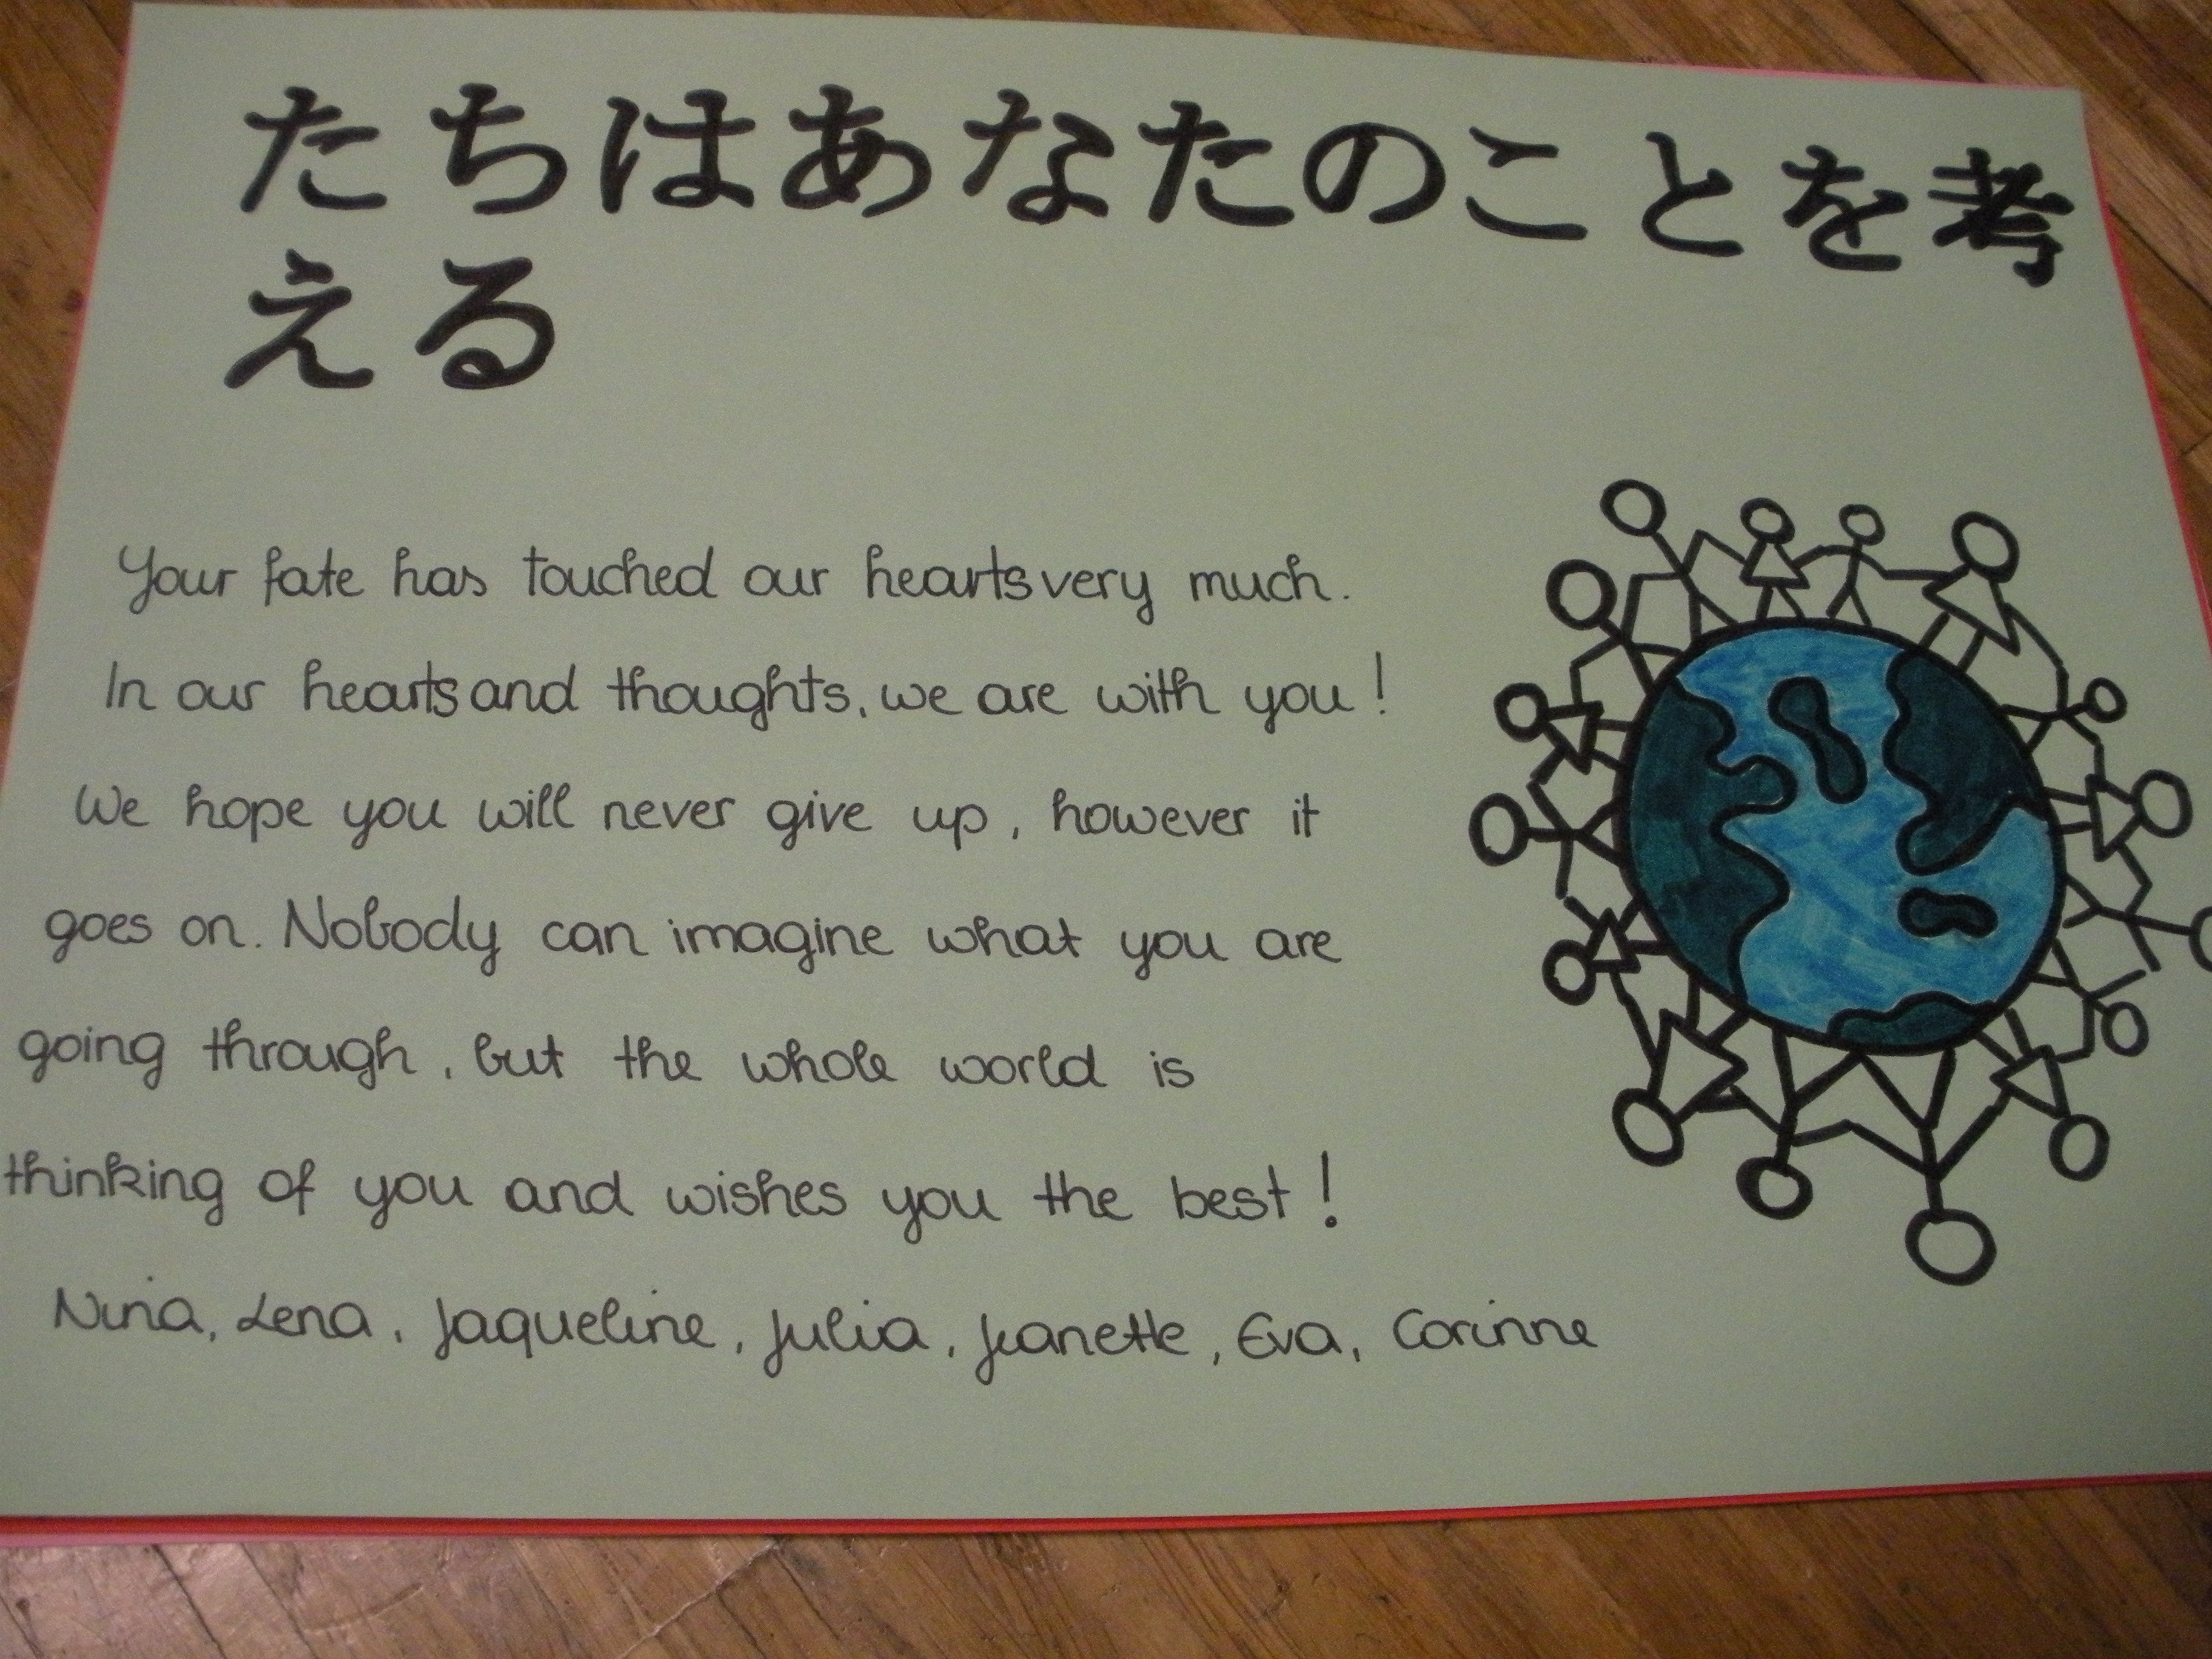 たちはあなたのことを考
える
Your fate has touched our hearts very much.
In our hearts and thoughts, we are with you!
We hope you will never give up, however it
goes on. Nobody can imagine what you are
going through, but the whole world is
thinking of you and wishes you the best!
Nina, Lena, Jaqueline, Julia, Jeanette, Eva, Corinne